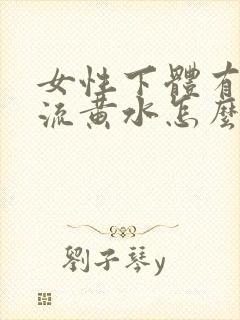 女性下體有
流黃水怎麼
劉子琴y